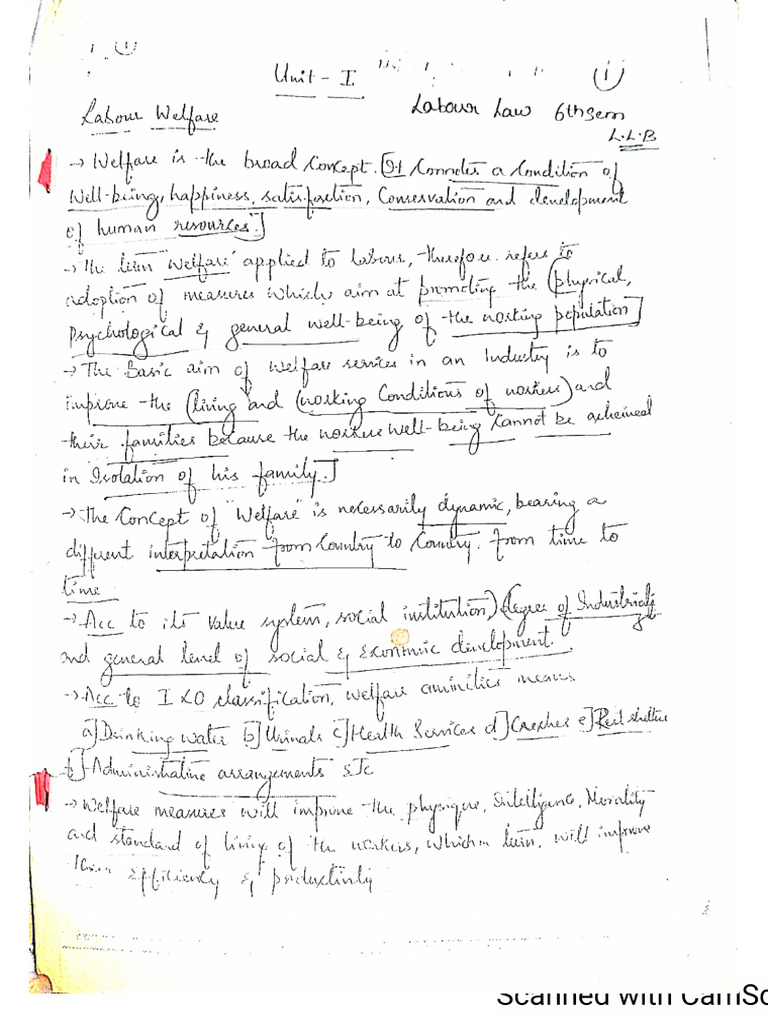 Unit - I
(1)
Labour Welfare
Labour Law 6th Sem
L.L.B
→ Welfare is the broad Concept. [It Connotes a Condition of
Well-being, happiness, satisfaction, Conservation and development
of human resources.]
→ The term "Welfare" applied to labour, therefore refers to
adoption of measures which aim at promoting the (physical,
Psychological & general well-being of the working population]
→ The Basic aim of Welfare services in an Industry is to
improve the (living and (working Conditions of workers) and
their families because the workers well-being Cannot be achieved
in Isolation of his family.]
→ The Concept of "Welfare" is necessarily dynamic, bearing a
different interpretation from Country to Country. from time to
time
→ Acc to its value system, social institution,) (degree of
and general level of social & Economic development.
→ Acc to ILO classification, welfare aminities means
a] Drinking water b] Urinals c] Health Services d] Creches e] Rest shelters
f] Administrative arrangements etc
→ Welfare measures will improve the physique, Intelligence, Morality
and standard of living of the workers, which in turn, will improve
their efficiency & productivity
Scanned with CamSc